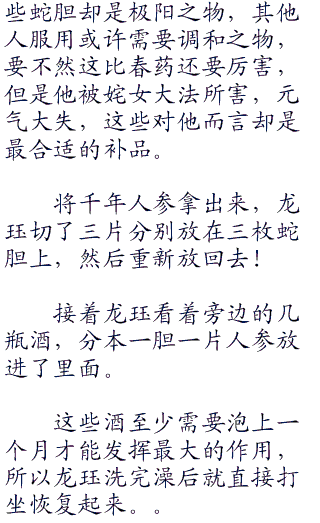 些蛇胆却是极阳之物，其他
人服用或许需要调和之物，
要不然这比春药还要厉害，
但是他被姹女大法所害，元
气大失，这些对他而言却是
最合适的补品。
将千年人参拿出来，龙
珏切了三片分别放在三枚蛇
胆上，然后重新放回去！
接着龙珏看着旁边的几
瓶酒，分本一胆一片人参放
进了里面。
这些酒至少需要泡上一
个月才能发挥最大的作用，
所以龙珏洗完澡后就直接打
坐恢复起来。。